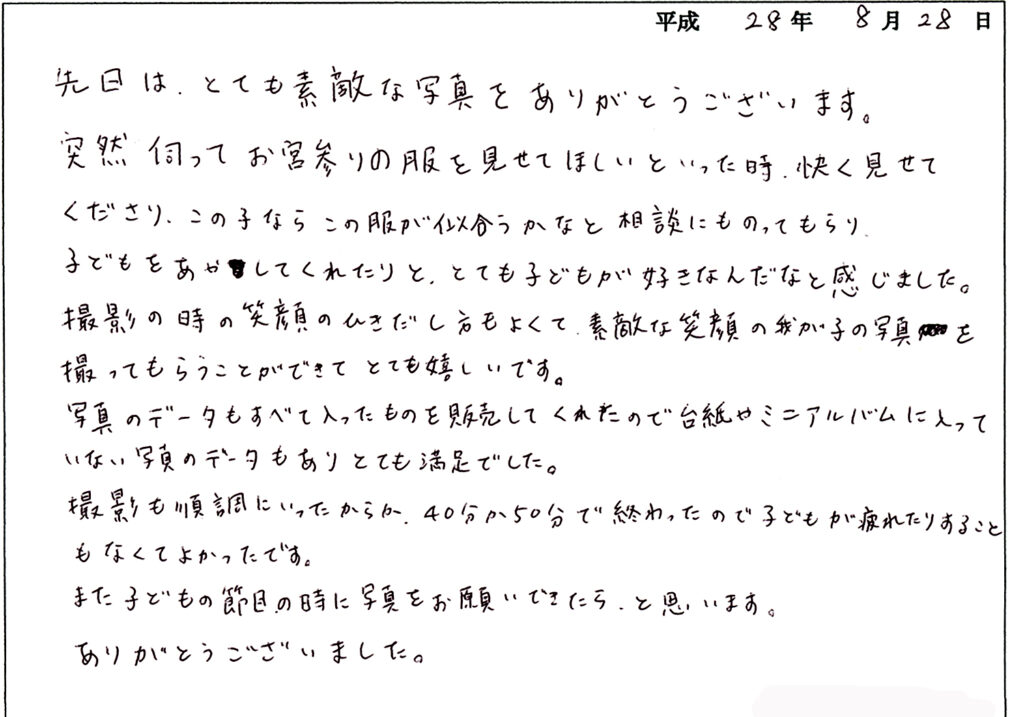 平成 28年 8月28日
先日は、とても素敵な写真をありがとうございます。
突然伺ってお宮参りの服を見せてほしいといった時、快く見せて
くださり、この子ならこの服が似合うかなと相談にものってもらり、
子どもをあやしてくれたりと、とても子どもが好きなんだなと感じました。
撮影の時の笑顔のひきだし方もよくて、素敵な笑顔の我が子の写真を
撮ってもらうことができてとても嬉しいです。
写真のデータもすべて入ったものを販売してくれたので台紙やミニアルバムに入って
いない写真のデータもありとても満足でした。
撮影も順調にいったからか、40分か50分で終わったので子どもが疲れたりすること
もなくてよかったです。
また子どもの節目の時に写真をお願いできたら、と思います。
ありがとうございました。